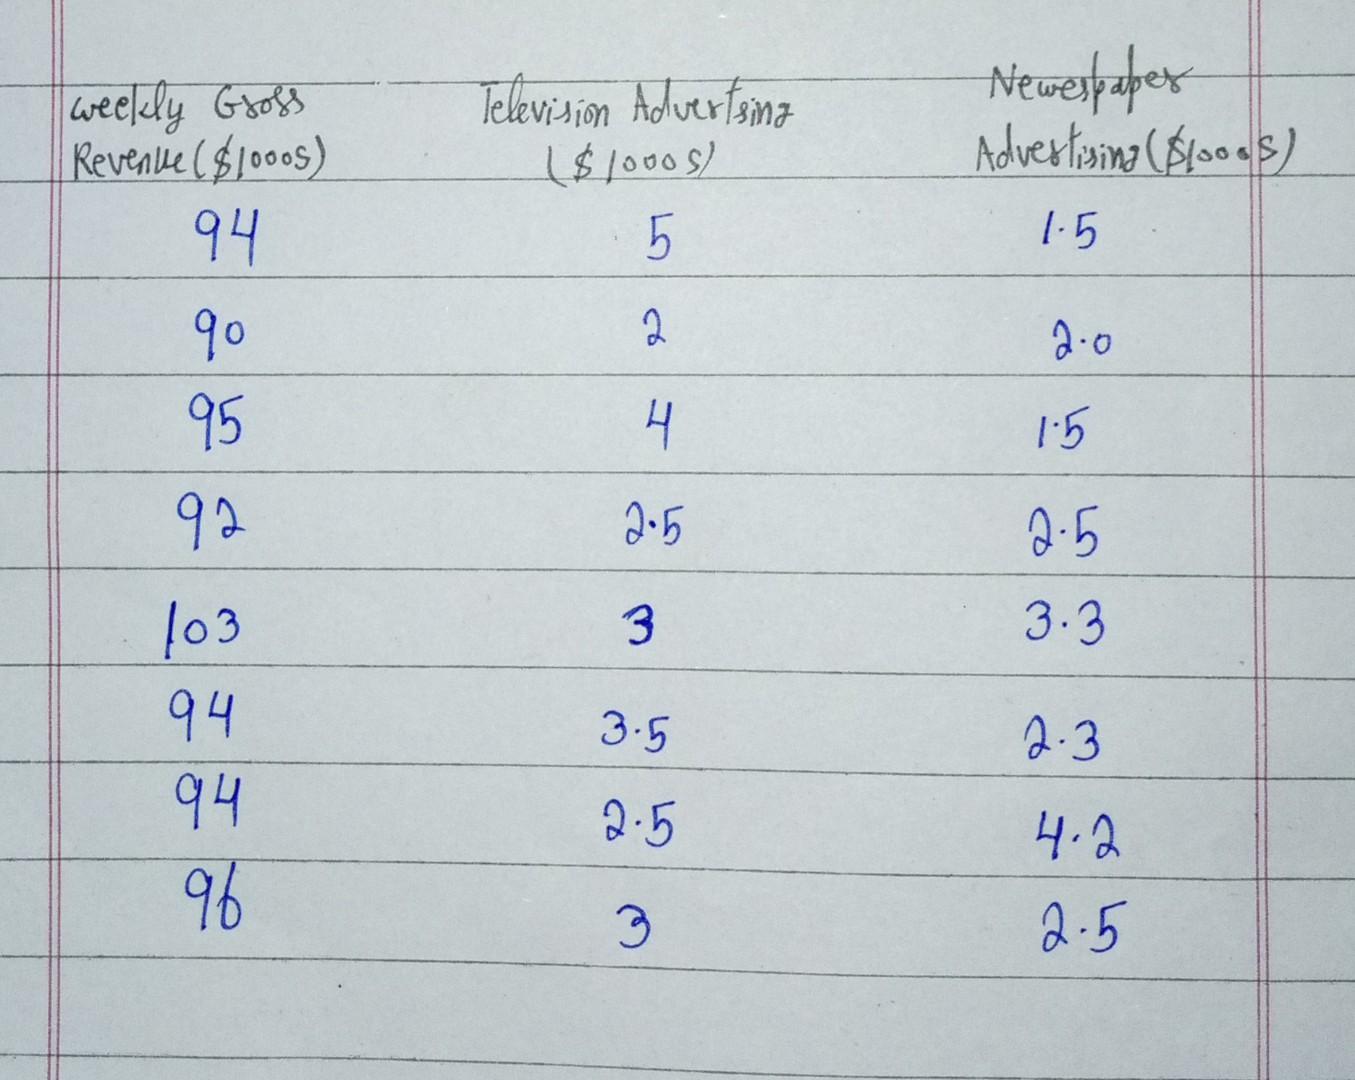 weekly Gross Television Advertsing Newespaper
Revenue ($1000s) ($1000s) Advertising ($1000s)
94 5 1.5
90 2 2.0
95 4 1.5
92 2.5 2.5
103 3 3.3
94 3.5 2.3
94 2.5 4.2
96 3 2.5